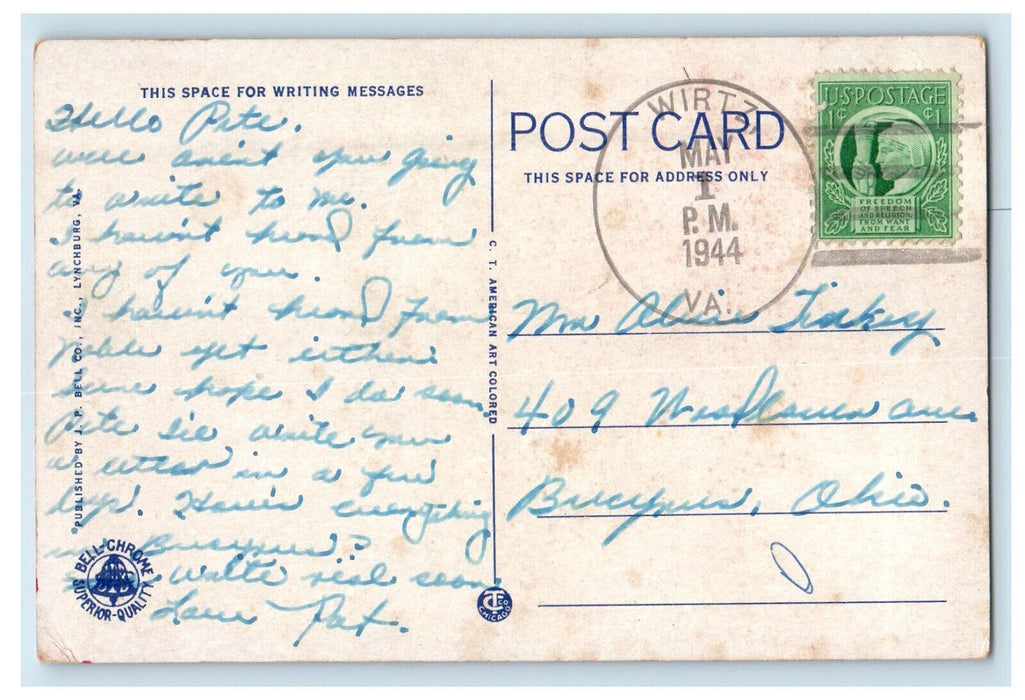 THIS SPACE FOR WRITING MESSAGES
Hello Pete.
well arent you going
to write to me.
I havint heard from
any of you.
I havint heard from
yet iethen
hope I do soon.
Pete Ile write you
a letter in a few
days. How's everything
in Bucyrus?
Write real soon.
Love Pat.
PUBLISHED BY J. P. BELL CO., INC., LYNCHBURG, VA.
BELL-CHROME
SUPERIOR-QUALITY
C. T. AMERICAN ART COLORED
CT CO
CHICAGO
POST CARD
THIS SPACE FOR ADDRESS ONLY
WIRTZ,
MAY
1
P.M.
1944
VA.
U.S. POSTAGE
1¢ ¢1
FREEDOM
OF SPEECH
AND RELIGION,
FROM WANT
AND FEAR
409 ave
Bucyrus, Ohio.